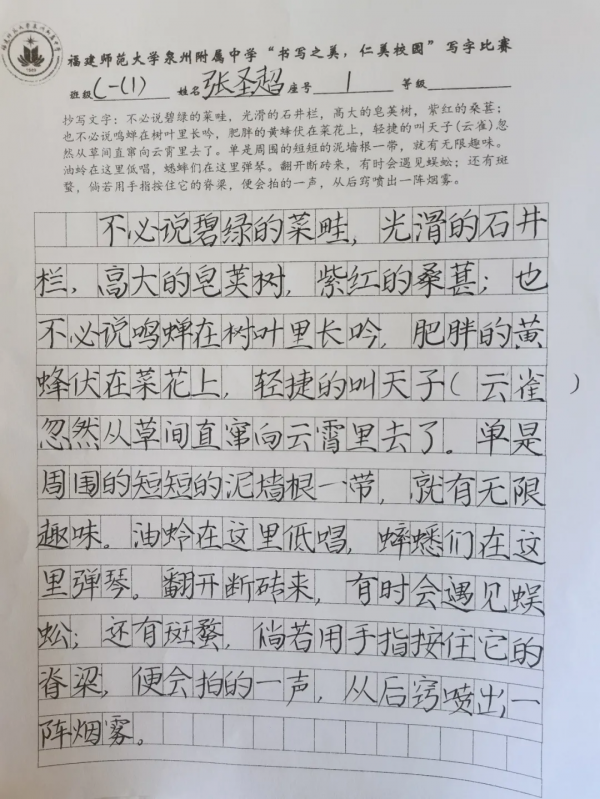 福建师范大学泉州附属中学“书写之美，仁美校园”写字比赛
班级（一（1） 姓名张圣超 座号1 等级
抄写文字：不必说碧绿的菜畦，光滑的石井栏，高大的皂荚树，紫红的桑葚；
也不必说鸣蝉在树叶里长吟，肥胖的黄蜂伏在菜花上，轻捷的叫天子(云雀)忽
然从草间直窜向云霄里去了。单是周围的短短的泥墙根一带，就有无限趣味。
油蛉在这里低唱，蟋蟀们在这里弹琴。翻开断砖来，有时会遇见蜈蚣；还有斑
蝥，倘若用手指按住它的脊梁，便会拍的一声，从后窍喷出一阵烟雾。
不必说碧绿的菜畦，光滑的石井
栏，高大的皂荚树，紫红的桑葚；也
不必说鸣蝉在树叶里长吟，肥胖的黄
蜂伏在菜花上，轻捷的叫天子（云雀）
忽然从草间直窜向云霄里去了。单是
周围的短短的泥墙根一带，就有无限
趣味。油蛉在这里低唱，蟀蟋们在这
里弹琴。翻开断砖来，有时会遇见蜈
蚣；还有斑蝥，倘若用手指按住它的
脊梁，便会拍的一声，从后窍喷出一
阵烟雾。